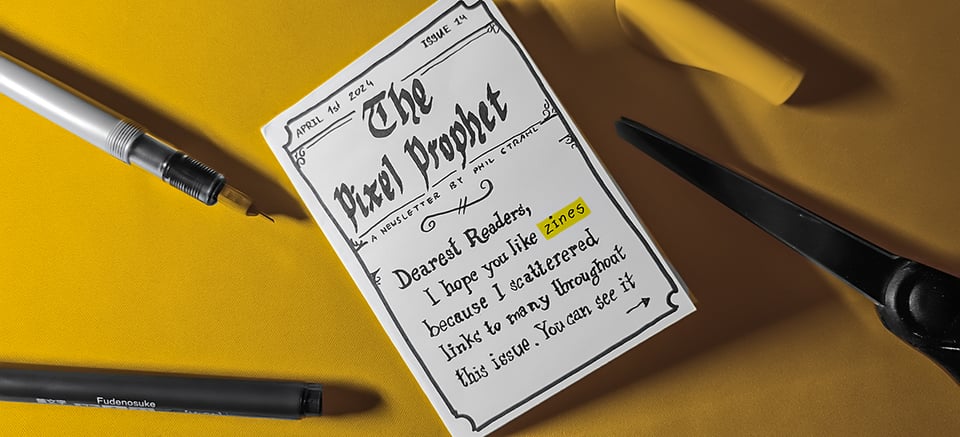 APRIL 1st 2024
ISSUE 14
The
Pixel Prophet
A NEWSLETTER BY PHIL CTRAHL
Dearest Readers,
I hope you like zines
because I scatterered
links to many throughout
this issue. You can see it →
Fudenosuke